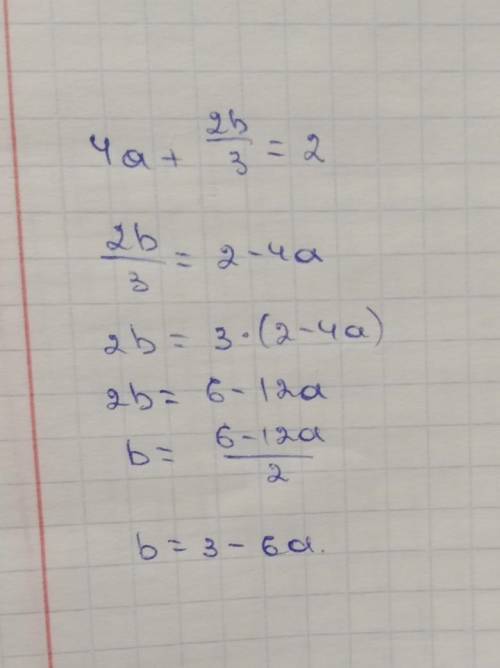 4a + 2b/3 = 2
2b/3 = 2 - 4a
2b = 3 · (2 - 4a)
2b = 6 - 12a
b = 6 - 12a/2
b = 3 - 6a.